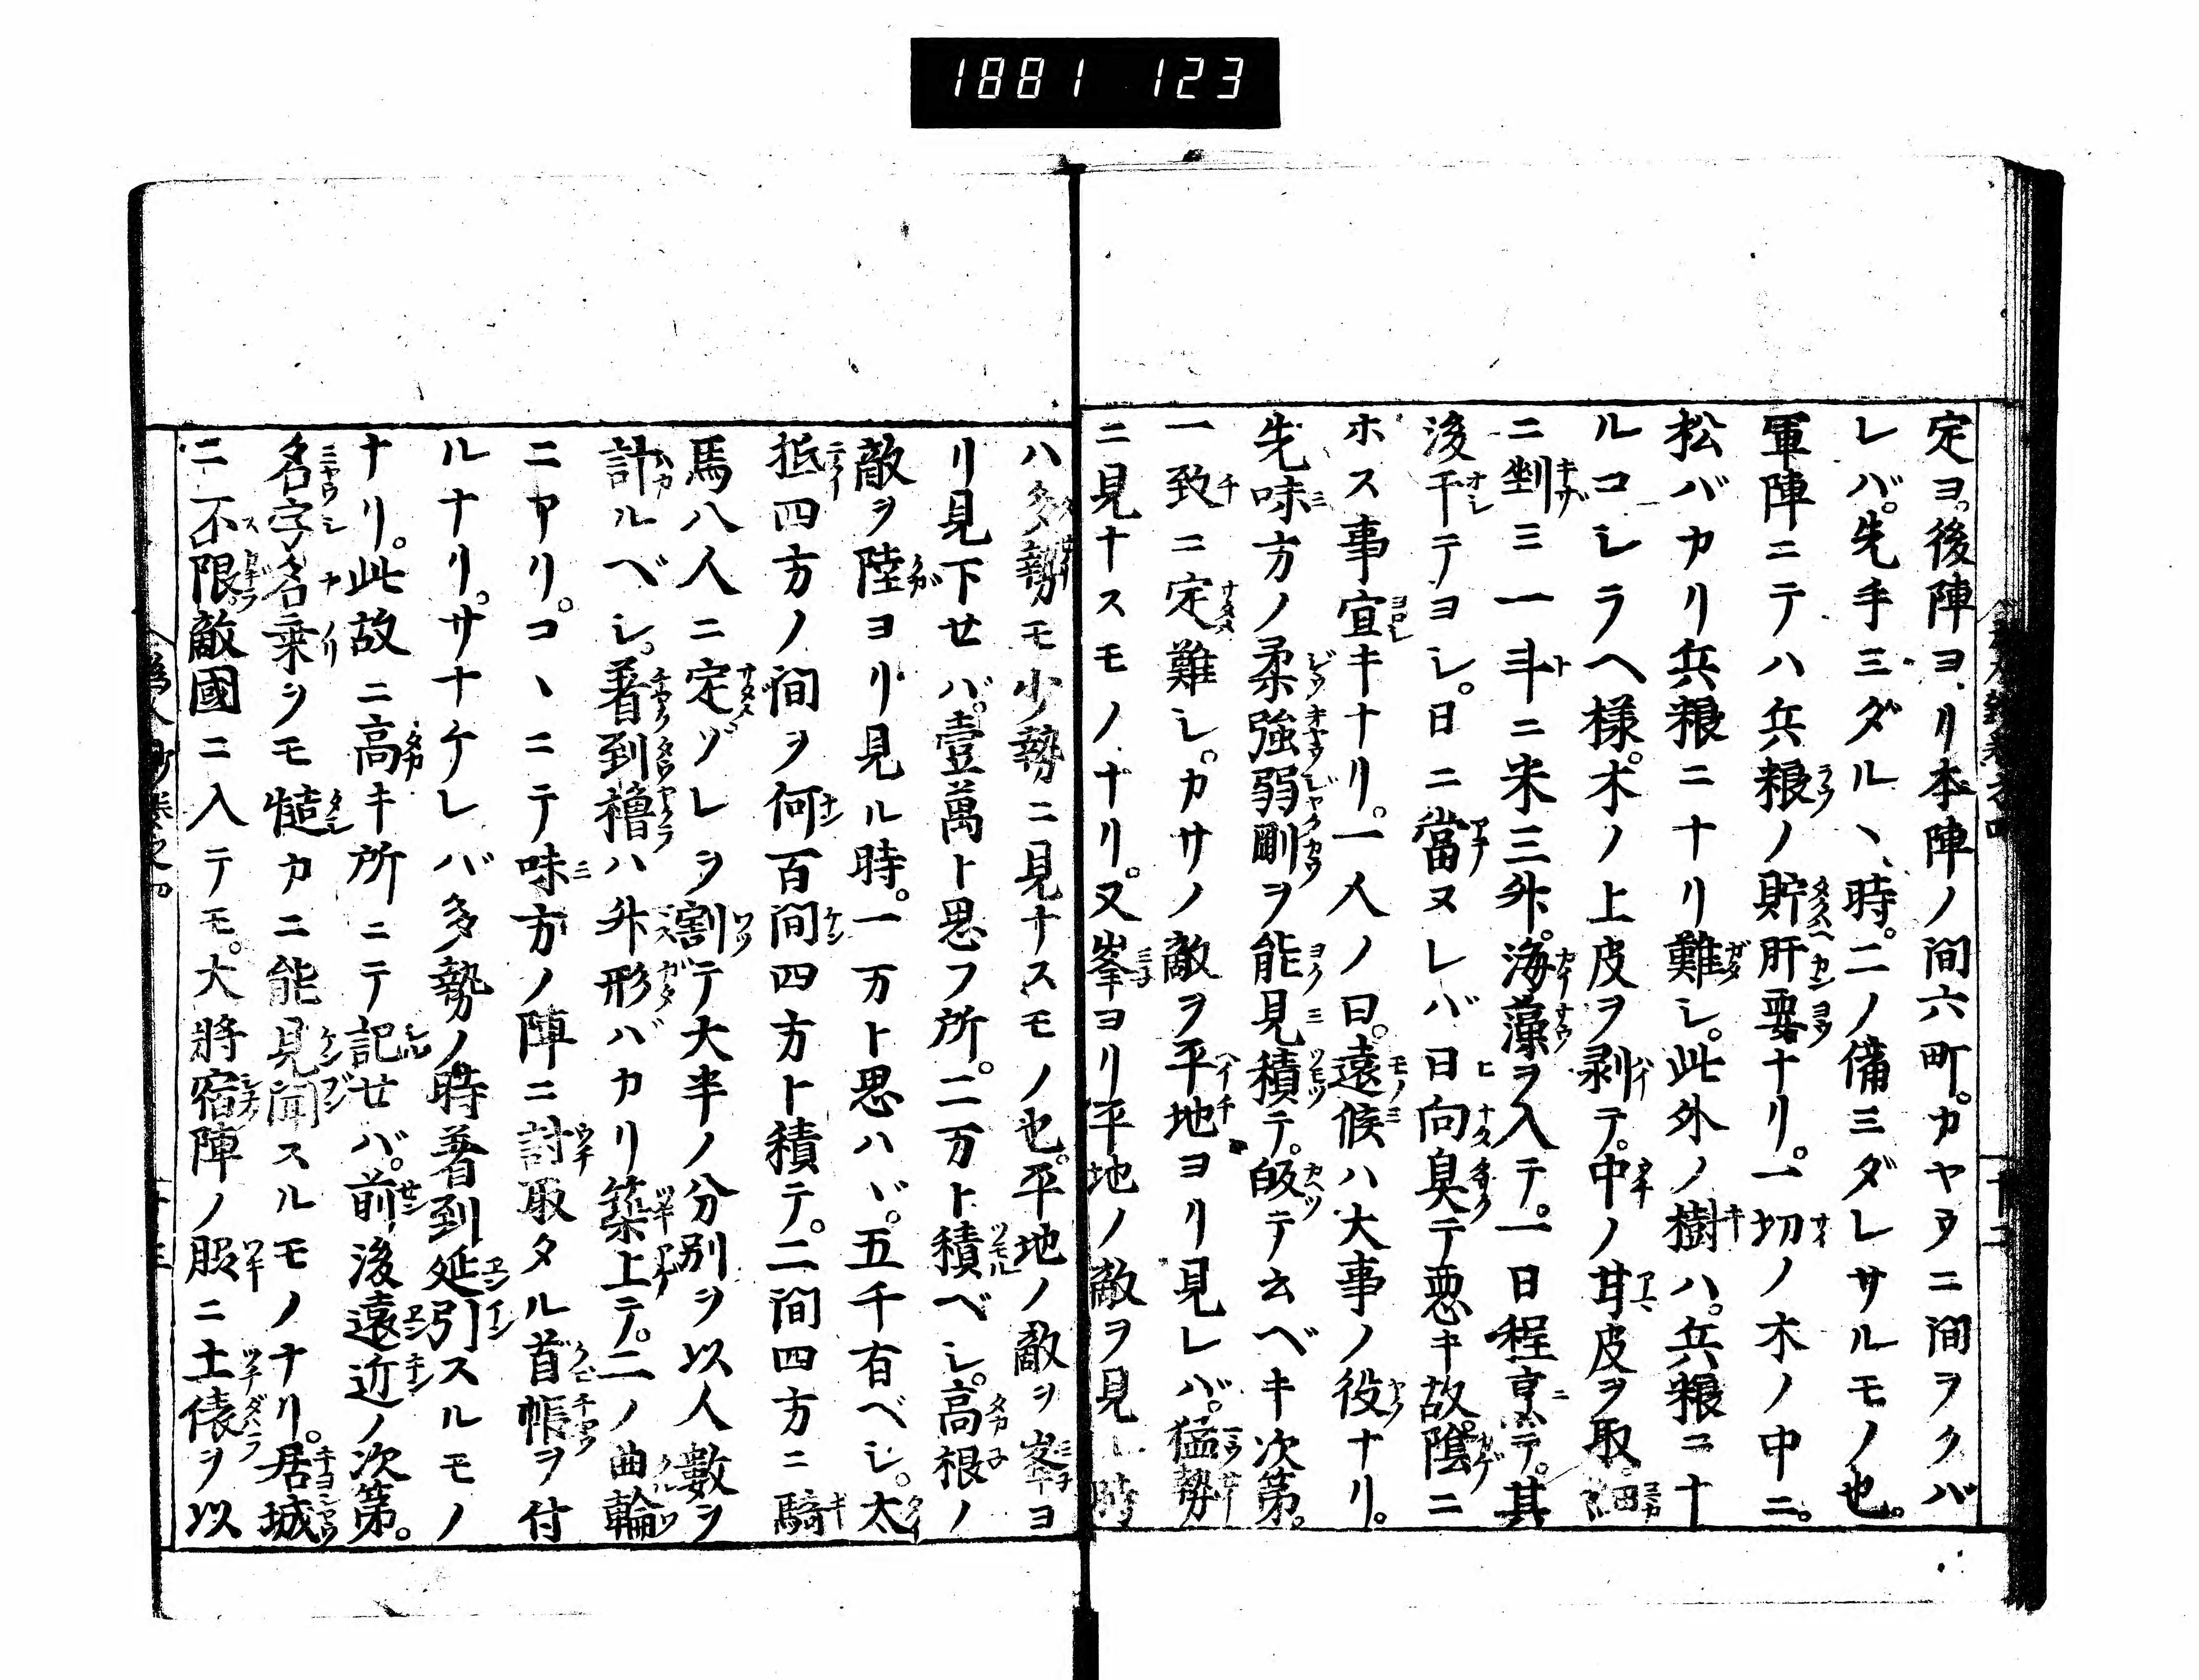 1881 123
定ヨ。後陣ヨリ本陣ノ間六町。カヤヲニ間ヲクバ
レバ。先手ミダルヽ時。二ノ備ミダレサルモノ也。
軍陣ニテハ兵粮ノ貯肝要ナリ。一切ノ木ノ中ニ。
松バカリ兵粮ニナリ難シ。此外ノ樹ハ。兵粮ニナ
ルコシラヘ様。木ノ上皮ヲ剥テ。中ノ甘皮ヲ取細
ニ剉ミ一斗ニ米三升。海藻ヲ入テ。一日程烹テ。其
後干テヨシ。日ニ當ヌレバ日向臭テ悪キ故。陰ニ
ホス事宜キナリ。一人ノ曰。遠候ハ大事ノ役ナリ。
先味方ノ柔強弱剛ヲ能見積テ。皈テ云ベキ次第。
一致ニ定難シ。カサノ敵ヲ平地ヨリ見レバ。猛勢
ニ見ナスモノナリ。又峯ヨリ平地ノ敵ヲ見ル時
ハ多勢モ少勢ニ見ナスモノ也。平地ノ敵ヲ峯ヨ
リ見下せバ。壹萬ト思フ所。二万ト積ベシ。高根ノ
敵ヲ陸ヨリ見ル時。一万ト思ハヾ。五千有ベシ。太
抵四方ノ間ヲ何百間四方ト積テ。二間四方ニ騎
馬八人ニ定ゾレヲ割テ大半ノ分別ヲ以人數ヲ
計ルベシ。着到櫓ハ外形バカリ築上テ。二ノ曲輪
ニアリ。コヽニテ味方ノ陣ニ討取タル首帳ヲ付
ルナリ。サナケレバ多勢ノ時着到延引スルモノ
ナリ。此故ニ高キ所ニテ記せバ。前後遠近ノ次第。
名字名乗ヲモ慥カニ能見聞スルモノナリ。居城
ニ不限。敵國ニ入テモ。大將宿陣ノ服ニ土俵ヲ以